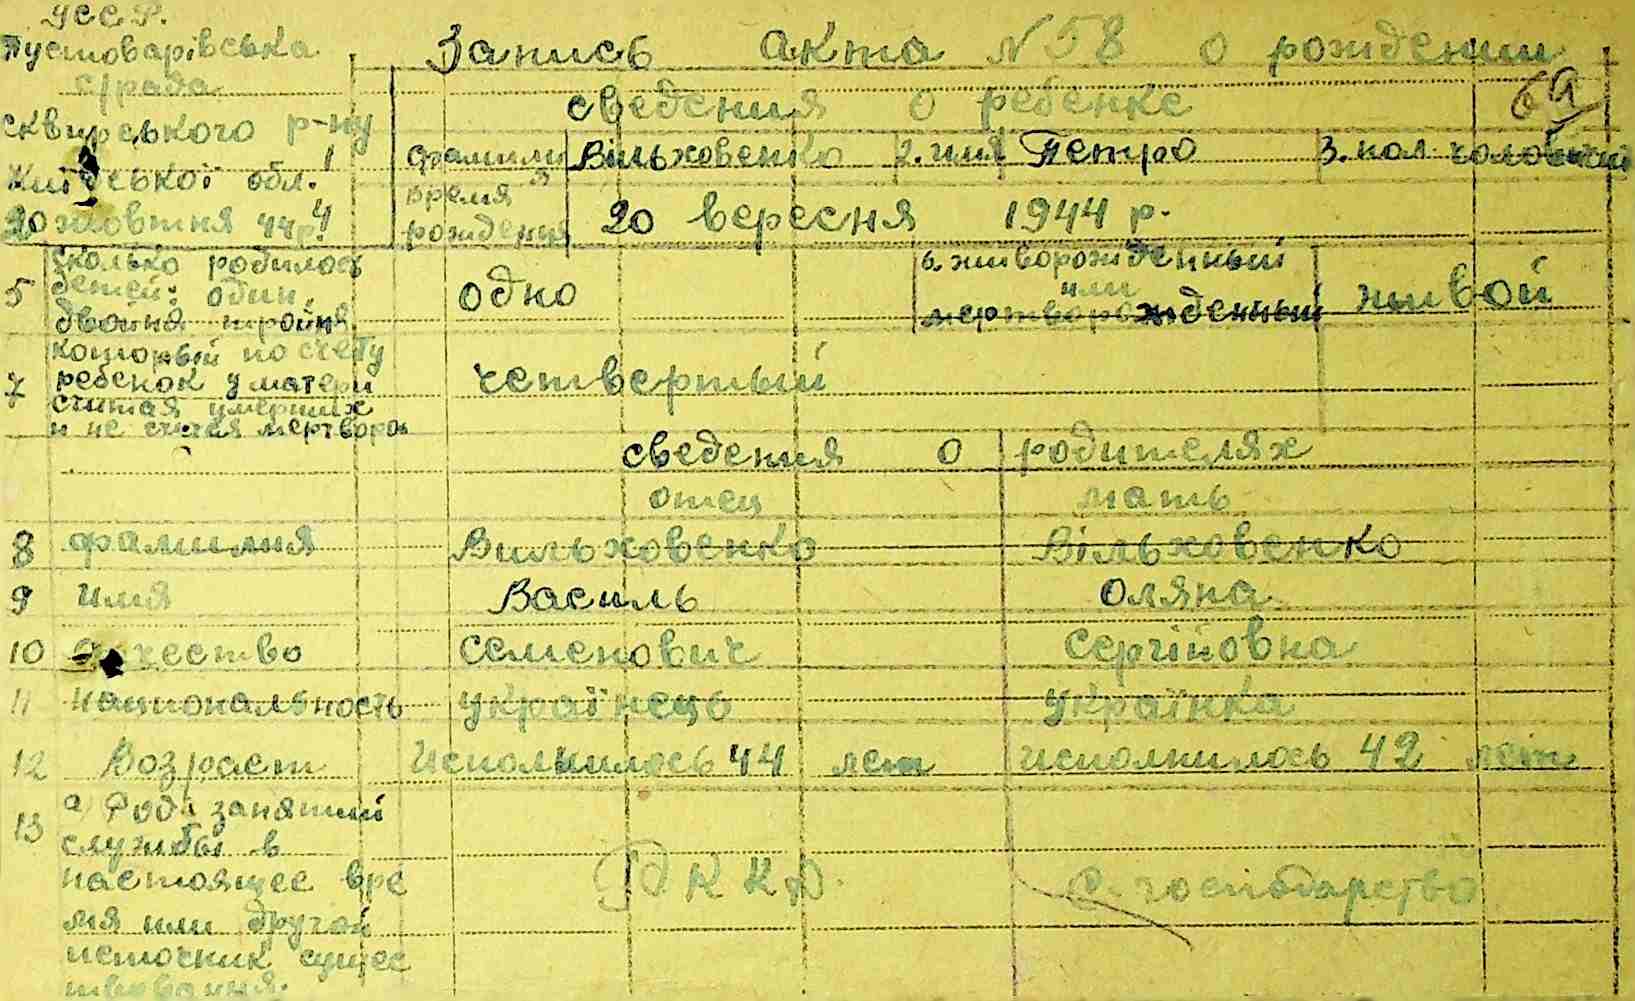 УССР.
Пустоварівська
с/рада
сквирського р-ну
Київської обл.
20 жовтня 44 р.
Запись акта № 58 о рождении
сведения о ребенке
1 фамилия Вільховенко 2. имя Петро 3. пол чоловічий
4 время рождения 20 вересня 1944 р.
5 сколько родилось детей: один, двойня тройня. одно 6. живорожденный или мертворожденный живой
7 который по счету ребенок у матери считая умерших и не считая мертворо четвертый
сведения о родителях
отец мать
8 фамилия Вильховенко Вільховенко
9 имя Василь Оляна
10 Отчество Семенович Сергійовна
11 Национальность українець українка
12 Возраст Исполнилось 44 лет исполнилось 42 лет
13 а) Род занятий
службы в
настоящее вре
мя или другой
источник сущес
твования.
РККА. С. господарство